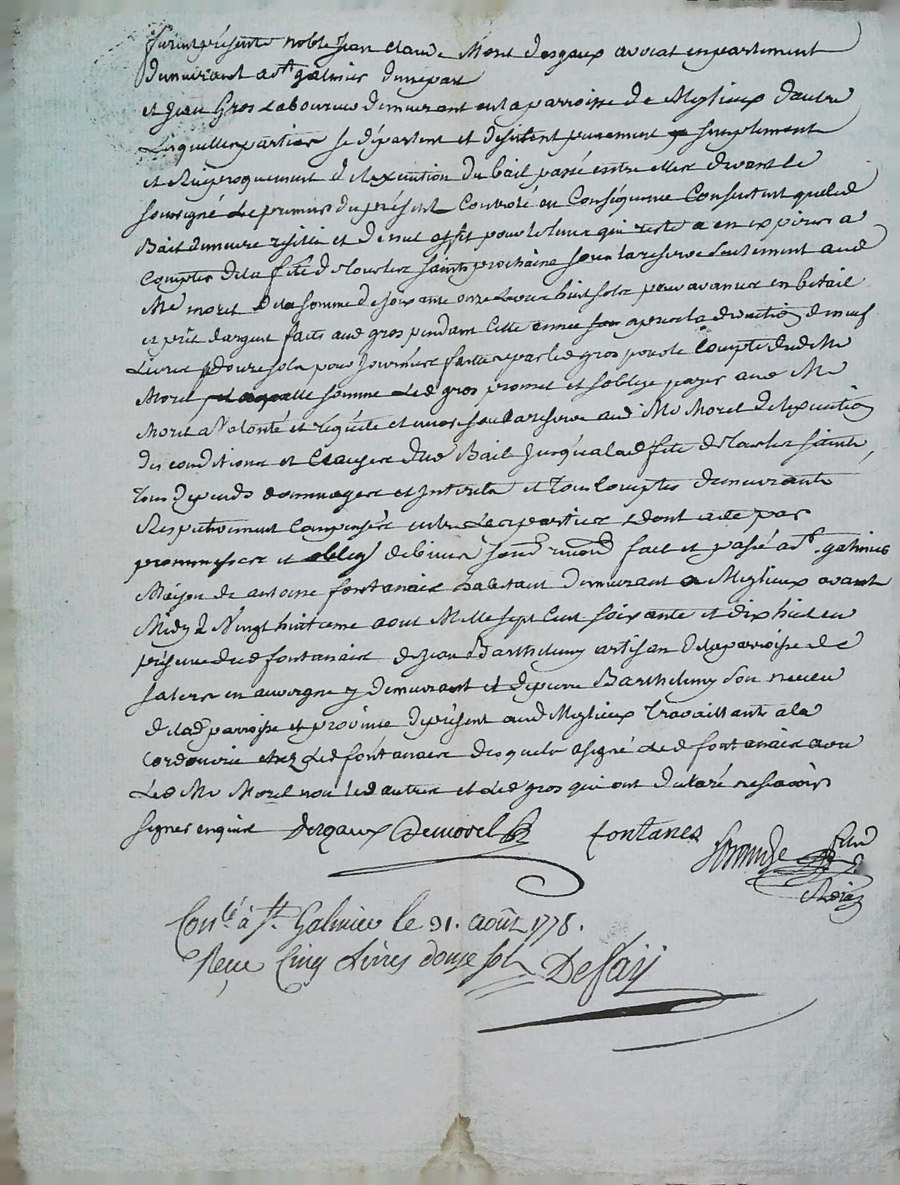 furent présents noble Jean Claude Morel Desgaux avocat en parlement
demeurant a St galmier d'une part
et Jean Gros Laboureur demeurant en la parroisse de Meylieux d'autre
Lesquelles parties se départent et desistent purement et simplement
et Réciproquement de l'execution du bail passé entre elles devant le
soussigné Le premier du présent Controlé en Conséquence Consentent que led
Bail demeure resilié et de nul effet pour le temps qui reste a en expirer a
Compter de la fête de Tous les saints prochaine sous la reserve seulement aud
Me morel de la somme de soixante onze Livres huit sols pour avances en betail
et prêt d'argent faits aud gros pendant cette année apres la deduction de neuf
Livres douze sols pour Journées faites par led gros pour le Compte dud Me
Morel laquelle somme Led gros promet et soblige payer aud Me
Morel a Volonté et réquête et encore sous la reserve aud Me Morel de l'execution
des conditions et Clauses dud Bail Jusqu'a lad fête de Tous les saints,
Tous depends dommages et Interets et tous Comptes demeurants
Respectivement Compensés entre Les parties dont acte par
promesses et oblig de biens fait et passé a St galmier
Maison de antoine fontanais habitant demeurant a Meylieux avant
Midy Le Vingt huitieme aout Mille sept Cent soixante et dix huit en
présence dud fontanais de Jean Barthelemy artisan de la parroisse de
salers en auvergne y demeurant et de pierre Barthelemy son neveu
de lad parroisse et province de présent aud Meylieux travaillants a la
Cordonnerie chez Led fontanais desquels a signé Led fontanais avec
Led Me Morel non led autres et Led gros qui ont déclaré ne sçavoir
signer enquis Desgaux Demorel fontanes
Conlé à St. Galmier le 31. août 1778.
Reçu Cinq Livres douze sols Defay